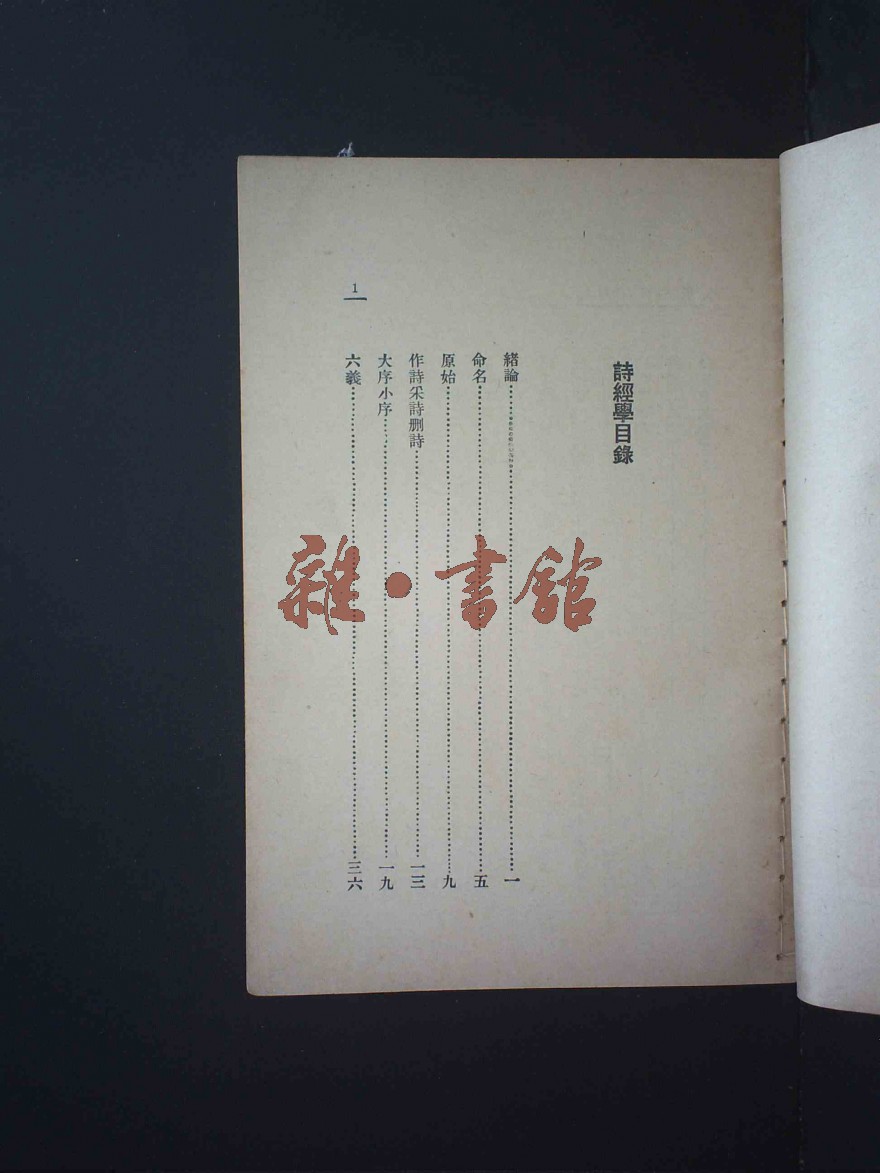 詩經學目錄
緒論……一
命名……五
原始……九
作詩采詩刪詩……一三
大序小序……一九
六義……三六
1
雜·書館